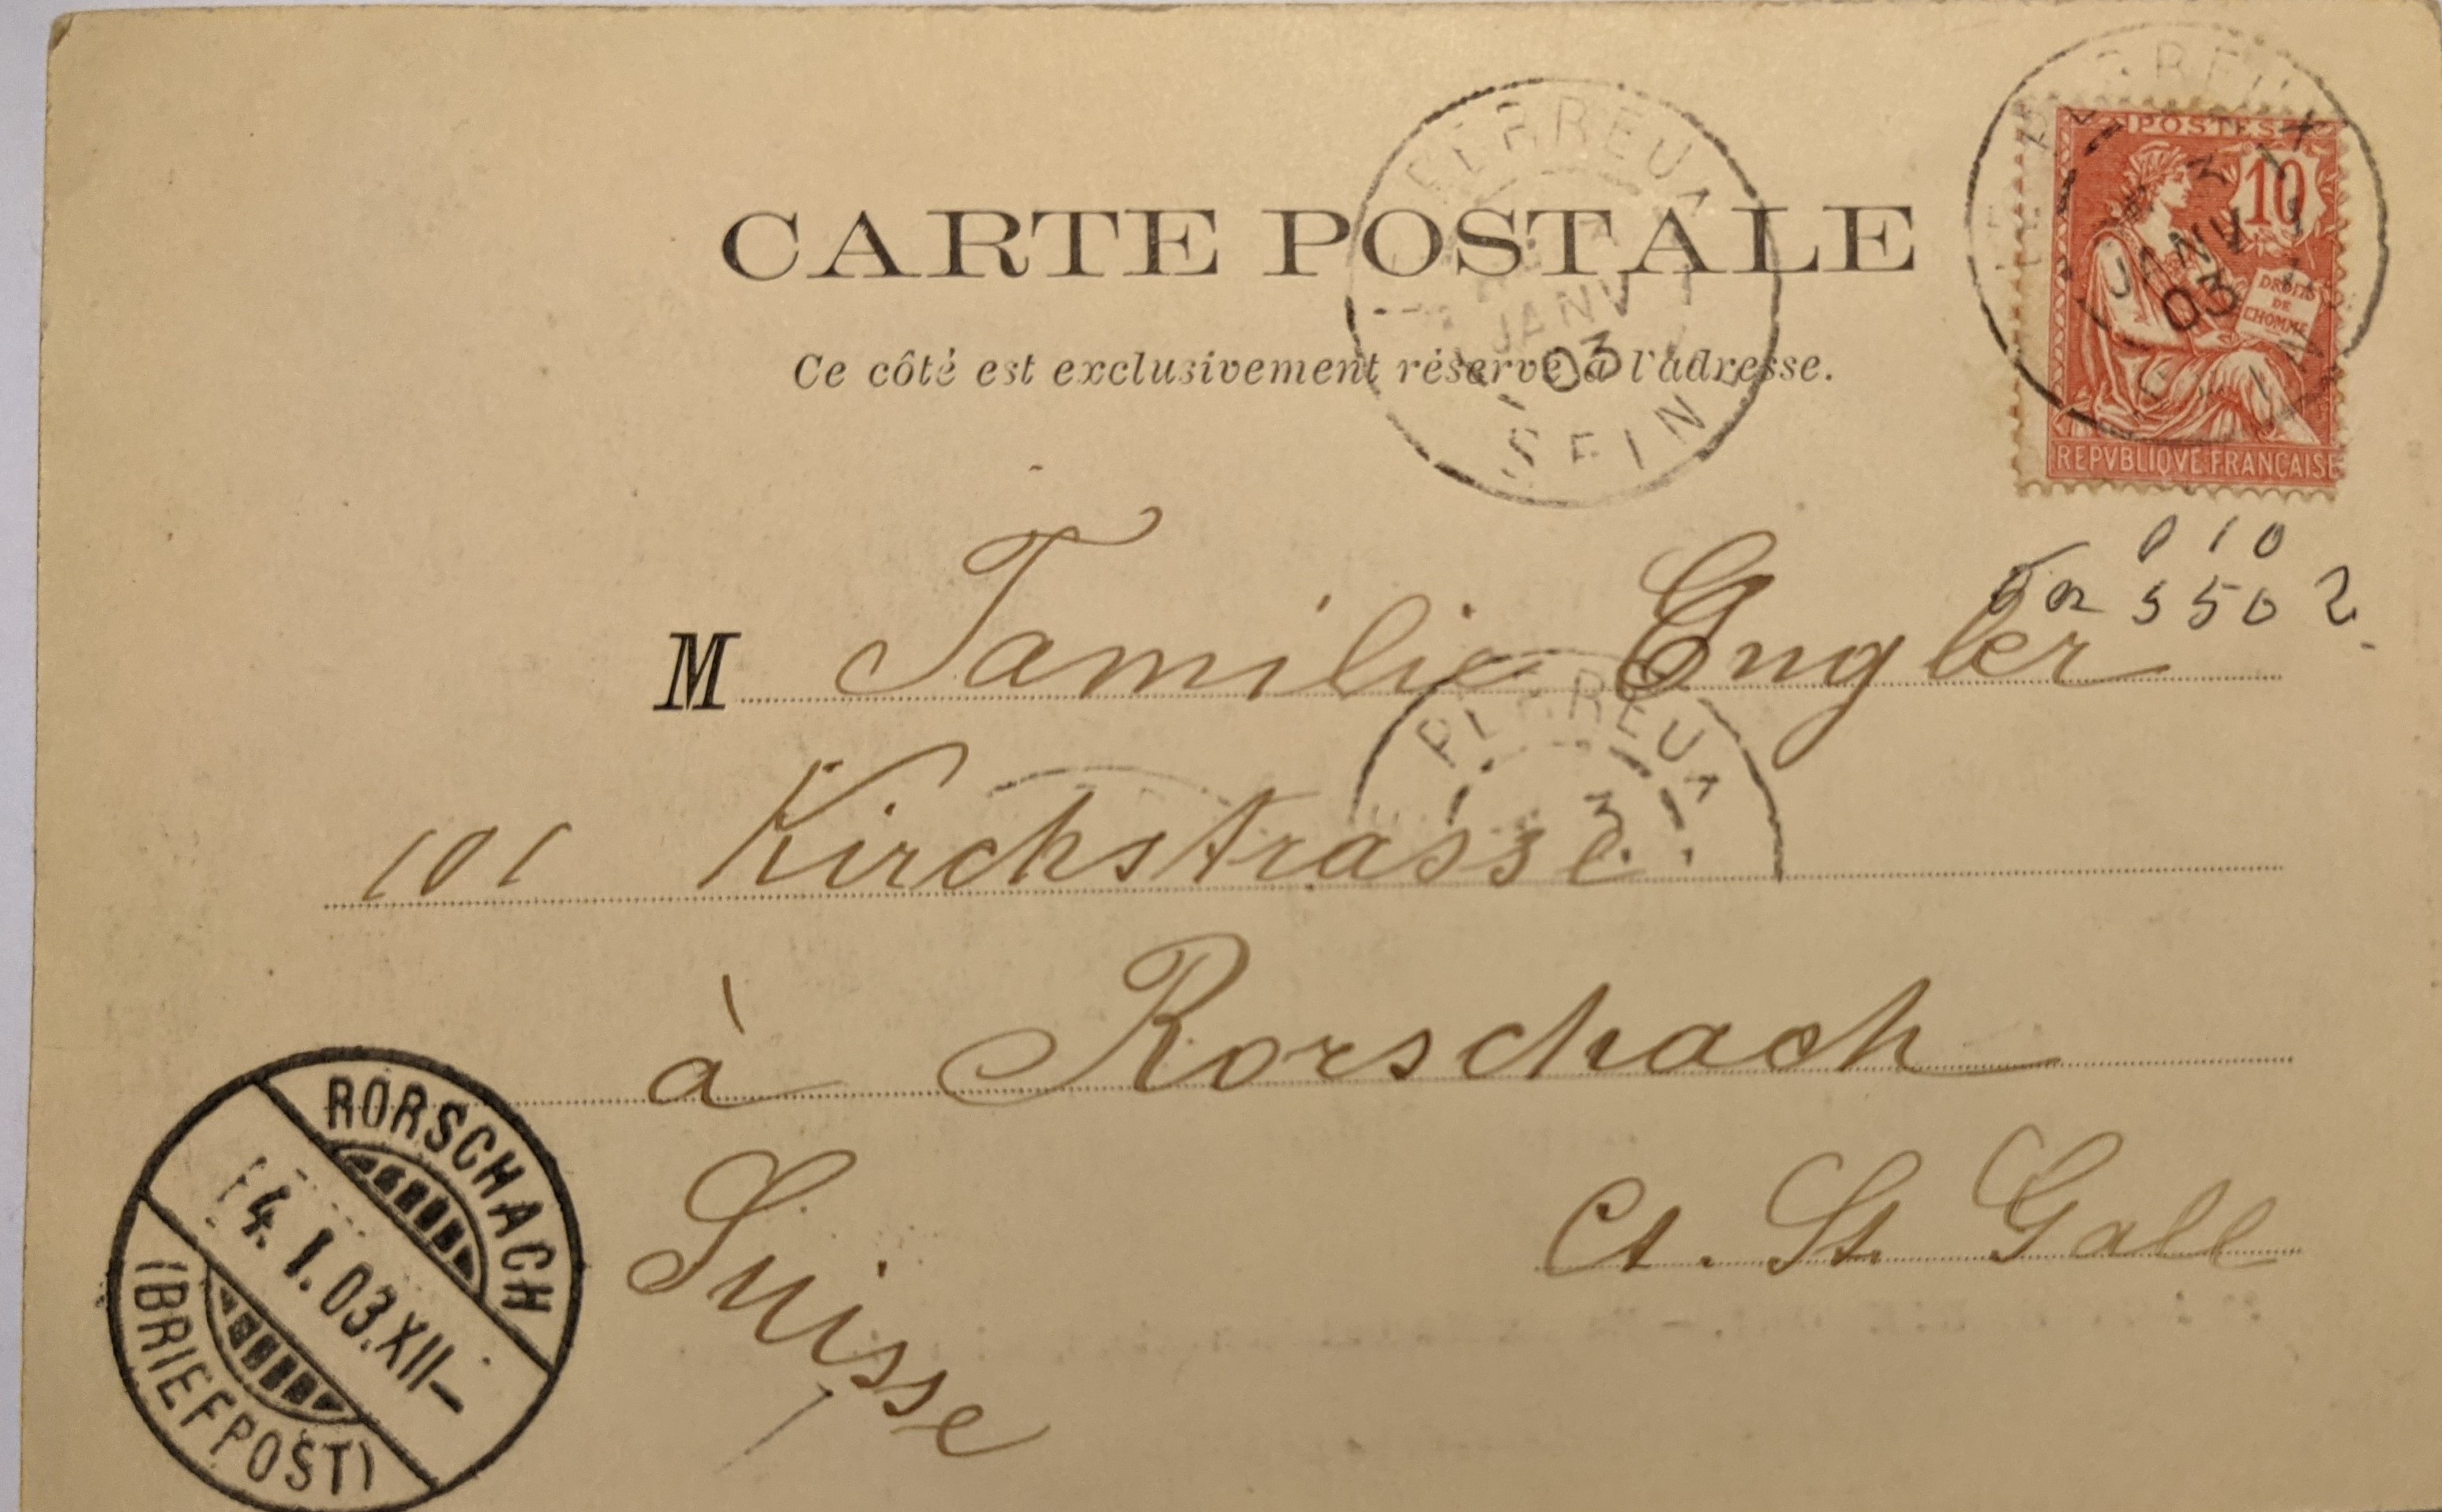 CARTE POSTALE
Ce côté est exclusivement réservé à l'adresse.
PERREUX
JANV
03
SEIN
POSTES
10
DROITS
DE
L'HOMME
REPVBLIQVE FRANÇAISE
PERREUX
3
JANV
03
010
3502
M Familie Engler
PERREUX
3
101 Kirchstrasse
à Rorschach
Ct. St. Gall
Suisse
RORSCHACH
4.1.03.XII-
(BRIEFPOST)